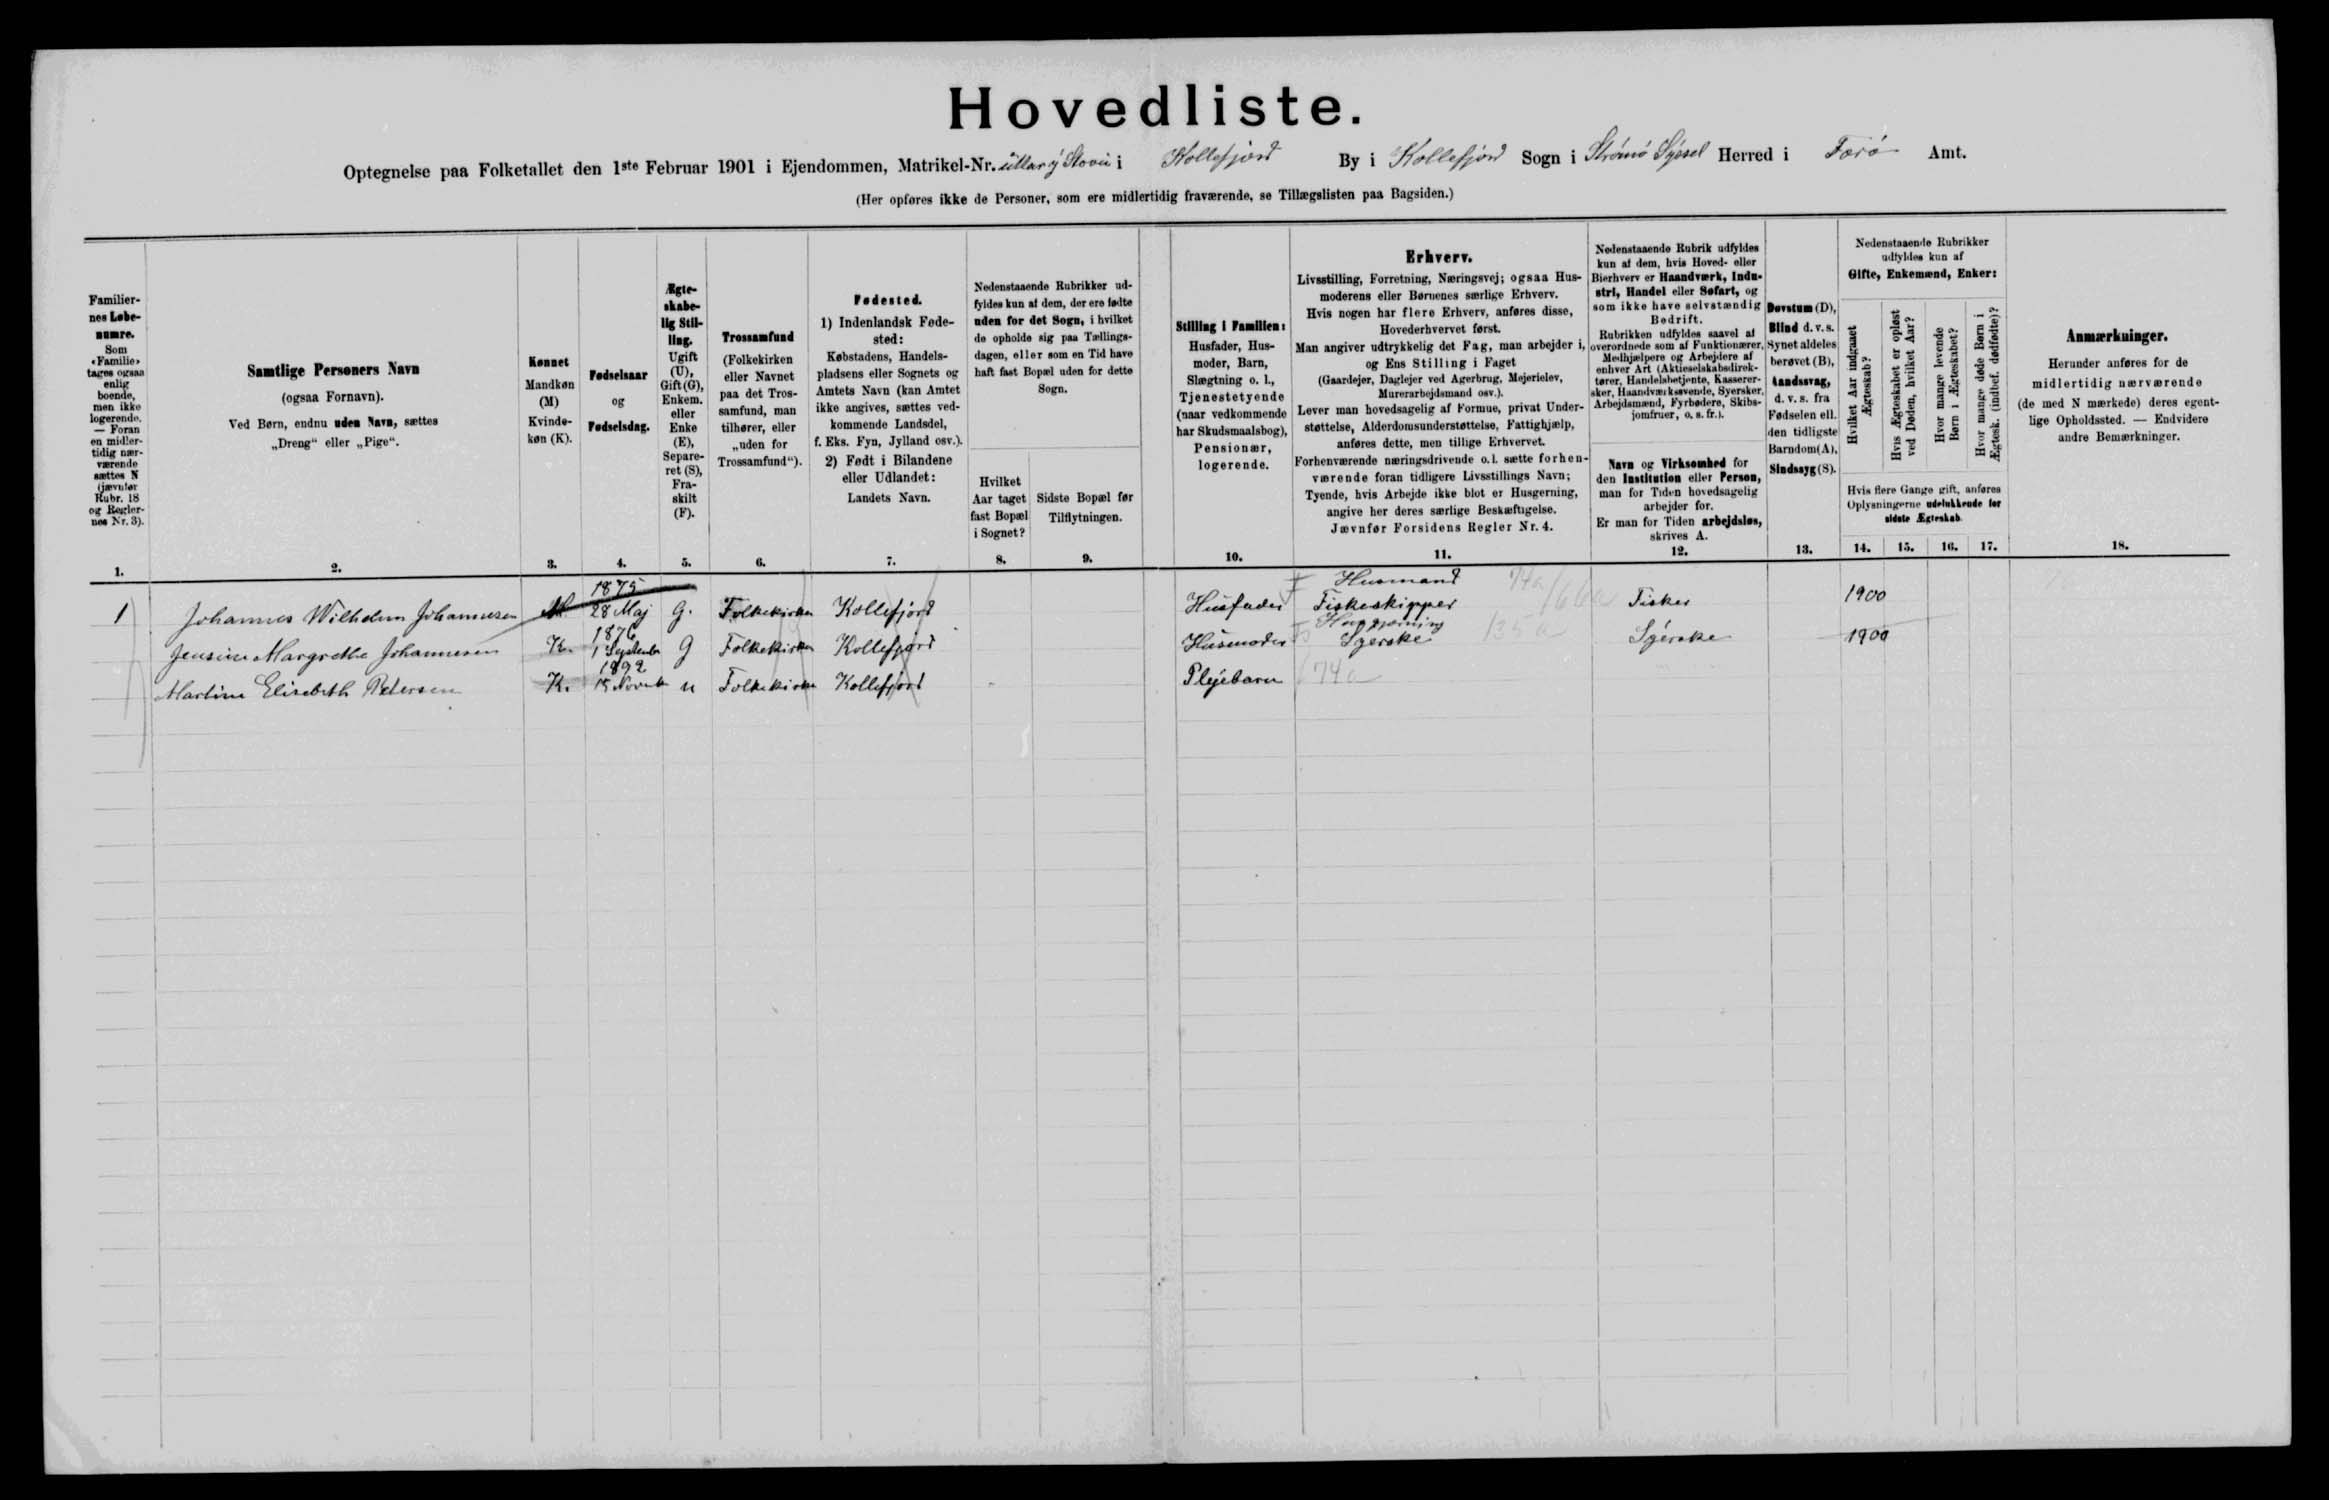 Hovedliste.
Optegnelse paa Folketallet den 1ste Februar 1901 i Ejendommen, Matrikel-Nr. i Kollefjord By i Kollefjord Sogn i Strömö Sÿssel Herred i Færö Amt.
(Her opføres ikke de Personer, som ere midlertidig fraværende, se Tillægslisten paa Bagsiden.)
Familiernes Løbenumre.
Som «Familie» tages ogsaa enlig boende, men ikke logerende. — Foran en midlertidig nærværende sættes N (jævnfør Rubr. 18 og Reglernes Nr. 3).
1.
Samtlige Personers Navn
(ogsaa Fornavn).
Ved Børn, endnu uden Navn, sættes
„Dreng“ eller „Pige“.
2.
Kønnet
Mandkøn (M)
Kvindekøn (K).
3.
Fødselsaar
og
Fødselsdag.
4.
Ægteskabelig Stilling.
Ugift (U), Gift (G), Enkem. eller Enke (E), Separeret (S), Fraskilt (F).
5.
Trossamfund
(Folkekirken eller Navnet paa det Trossamfund, man tilhører, eller „uden for Trossamfund“).
6.
Fødested.
1) Indenlandsk Fødested:
Købstadens, Handelspladsens eller Sognets og Amtets Navn (kan Amtet ikke angives, sættes vedkommende Landsdel, f. Eks. Fyn, Jylland osv.).
2) Født i Bilandene eller Udlandet:
Landets Navn.
7.
Nedenstaaende Rubrikker udfyldes kun af dem, der ere fødte uden for det Sogn, i hvilket de opholde sig paa Tællingsdagen, eller som en Tid have haft fast Bopæl uden for dette Sogn.
Hvilket Aar taget fast Bopæl i Sognet?
8.
Sidste Bopæl før Tilflytningen.
9.
Stilling i Familien:
Husfader, Husmoder, Barn, Slægtning o. l., Tjenestetyende (naar vedkommende har Skudsmaalsbog), Pensionær, logerende.
10.
Erhverv.
Livsstilling, Forretning, Næringsvej; ogsaa Husmoderens eller Børnenes særlige Erhverv.
Hvis nogen har flere Erhverv, anføres disse, Hovederhvervet først.
Man angiver udtrykkelig det Fag, man arbejder i, og Ens Stilling i Faget
(Gaardejer, Daglejer ved Agerbrug, Mejerielev, Murerarbejdsmand osv.).
Lever man hovedsagelig af Formue, privat Understøttelse, Alderdomsunderstøttelse, Fattighjælp, anføres dette, men tillige Erhvervet.
Forhenværende næringsdrivende o. l. sætte forhenværende foran tidligere Livsstillings Navn;
Tyende, hvis Arbejde ikke blot er Husgerning, angive her deres særlige Beskæftigelse.
Jævnfør Forsidens Regler Nr. 4.
11.
Nedenstaaende Rubrik udfyldes kun af dem, hvis Hoved- eller Bierhverv er Haandværk, Industri, Handel eller Søfart, og som ikke have selvstændig Bedrift.
Rubrikken udfyldes saavel af overordnede som af Funktionærer, Medhjælpere og Arbejdere af enhver Art (Aktieselskabsdirektører, Handelsbetjente, Kasserersker, Haandværkssvende, Syersker, Arbejdsmænd, Fyrbødere, Skibsjomfruer, o. s. fr.).
Navn og Virksomhed for den Institution eller Person, man for Tiden hovedsagelig arbejder for.
Er man for Tiden arbejdsløs, skrives A.
12.
Døvstum (D),
Blind d. v. s. Synet aldeles berøvet (B),
Aandssvag, d. v. s. fra Fødselen ell. den tidligste Barndom (A),
Sindssyg (S).
13.
Nedenstaaende Rubrikker udfyldes kun af
Gifte, Enkemænd, Enker:
Hvilket Aar indgaaet Ægteskab?
Hvis Ægteskabet er opløst ved Døden, hvilket Aar?
Hvor mange levende Børn i Ægteskabet?
Hvor mange døde Børn i Ægtesk. (indbef. dødfødte)?
Hvis flere Gange gift, anføres Oplysningerne udelukkende for sidste Ægteskab.
14. 15. 16. 17.
Anmærkninger.
Herunder anføres for de midlertidig nærværende (de med N mærkede) deres egentlige Opholdssted. — Endvidere andre Bemærkninger.
18.
1875 Husmand 74a/66a
1 Johannes Wilhelm Johannesen M. 28 Maj G. Folkekirken Kollefjord Husfader F Fiskeskipper Fisker 1900
1876 Husgjerning
Jensine Margrethe Johannesen K. 1 September G Folkekirken Kollefjord Husmoder Syerske 135a Syerske 1900
1892
Martine Elisebeth Petersen K. 15 Novemb u Folkekirken Kollefjord Plejebarn 74a